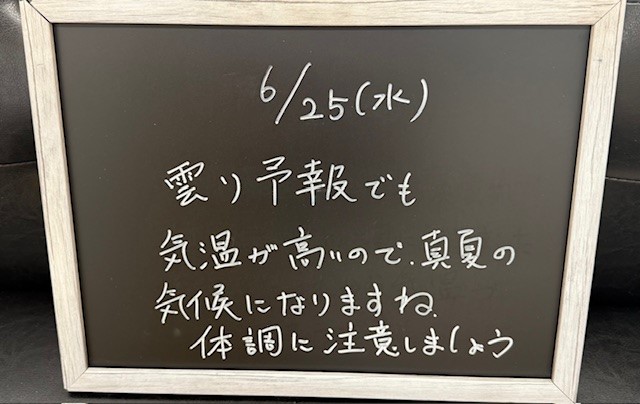 6/25(水)
雲り予報でも
気温が高いので、真夏の
気候になりますね。
体調に注意しましょう